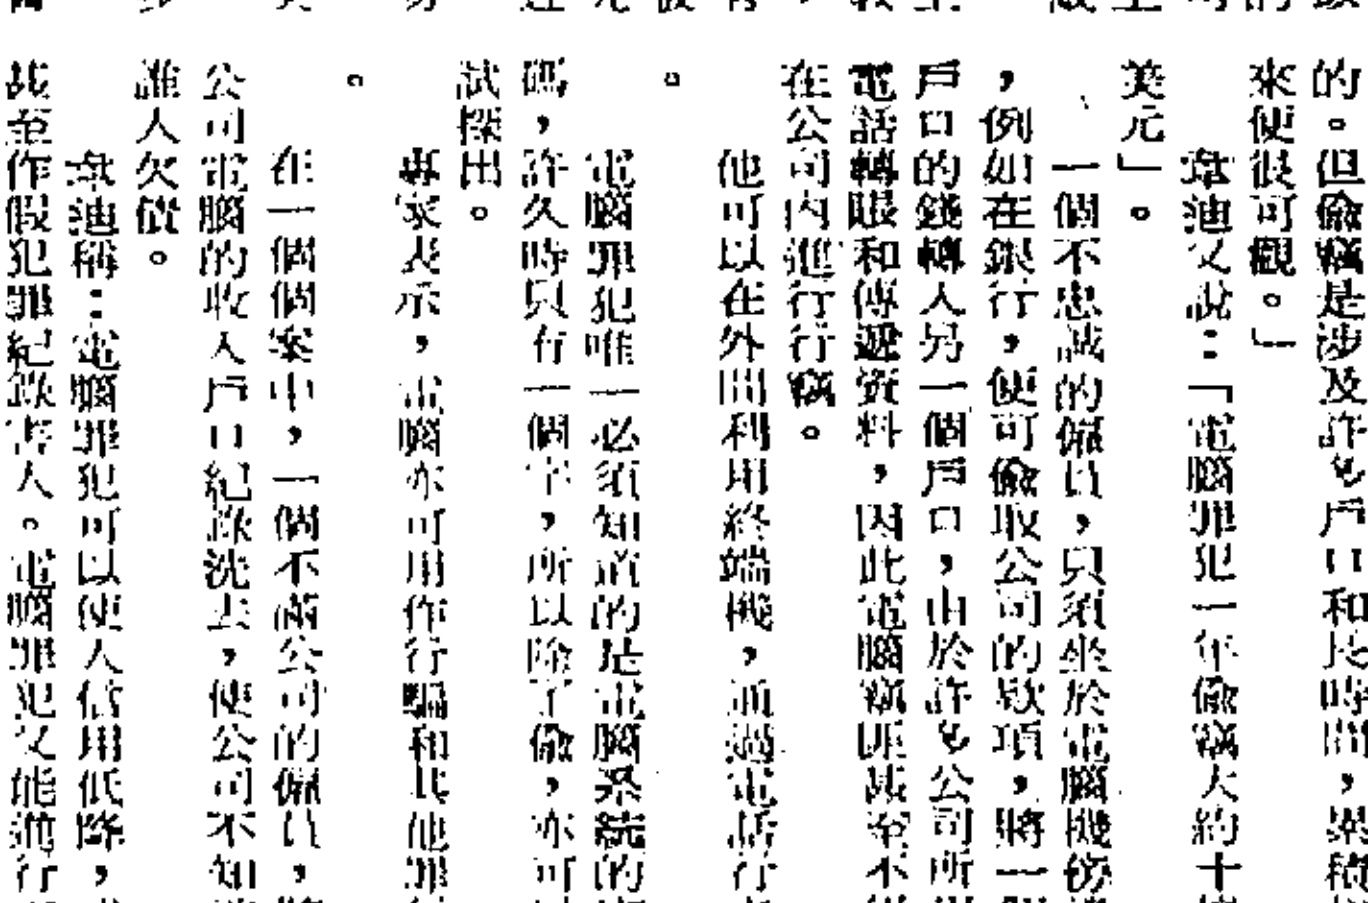 的。但偸竊是涉及許多戶口和長時間,累積
來便很可觀。」
韋迪又說:「電腦罪犯一年偸竊大約十
美元」。
一個不忠誠的僱員,只須坐於電腦機傍
,例如在銀行,便可偸取公司的欵項,將一
戶口的錢轉入另一個戶口,由於許多公司所
電話轉賬和傳遞資料,因此電腦竊匪甚至不
在公司內進行行竊。
他可以在外間利用終端機,通過電話行
。
電腦罪犯唯一必須知道的是電腦系統的
碼,許久時只有一個字,所以除了偸,亦可
試探出。
專家表示,電腦亦可用作行騙和其他罪
。
在一個個案中,一個不滿公司的僱員,
公司電腦的收入戶口紀錄洗去,使公司不知
誰人欠債。
韋迪稱:電腦罪犯可以使人信用低降,
甚至作假犯罪紀錄害人。電腦罪犯又能進行